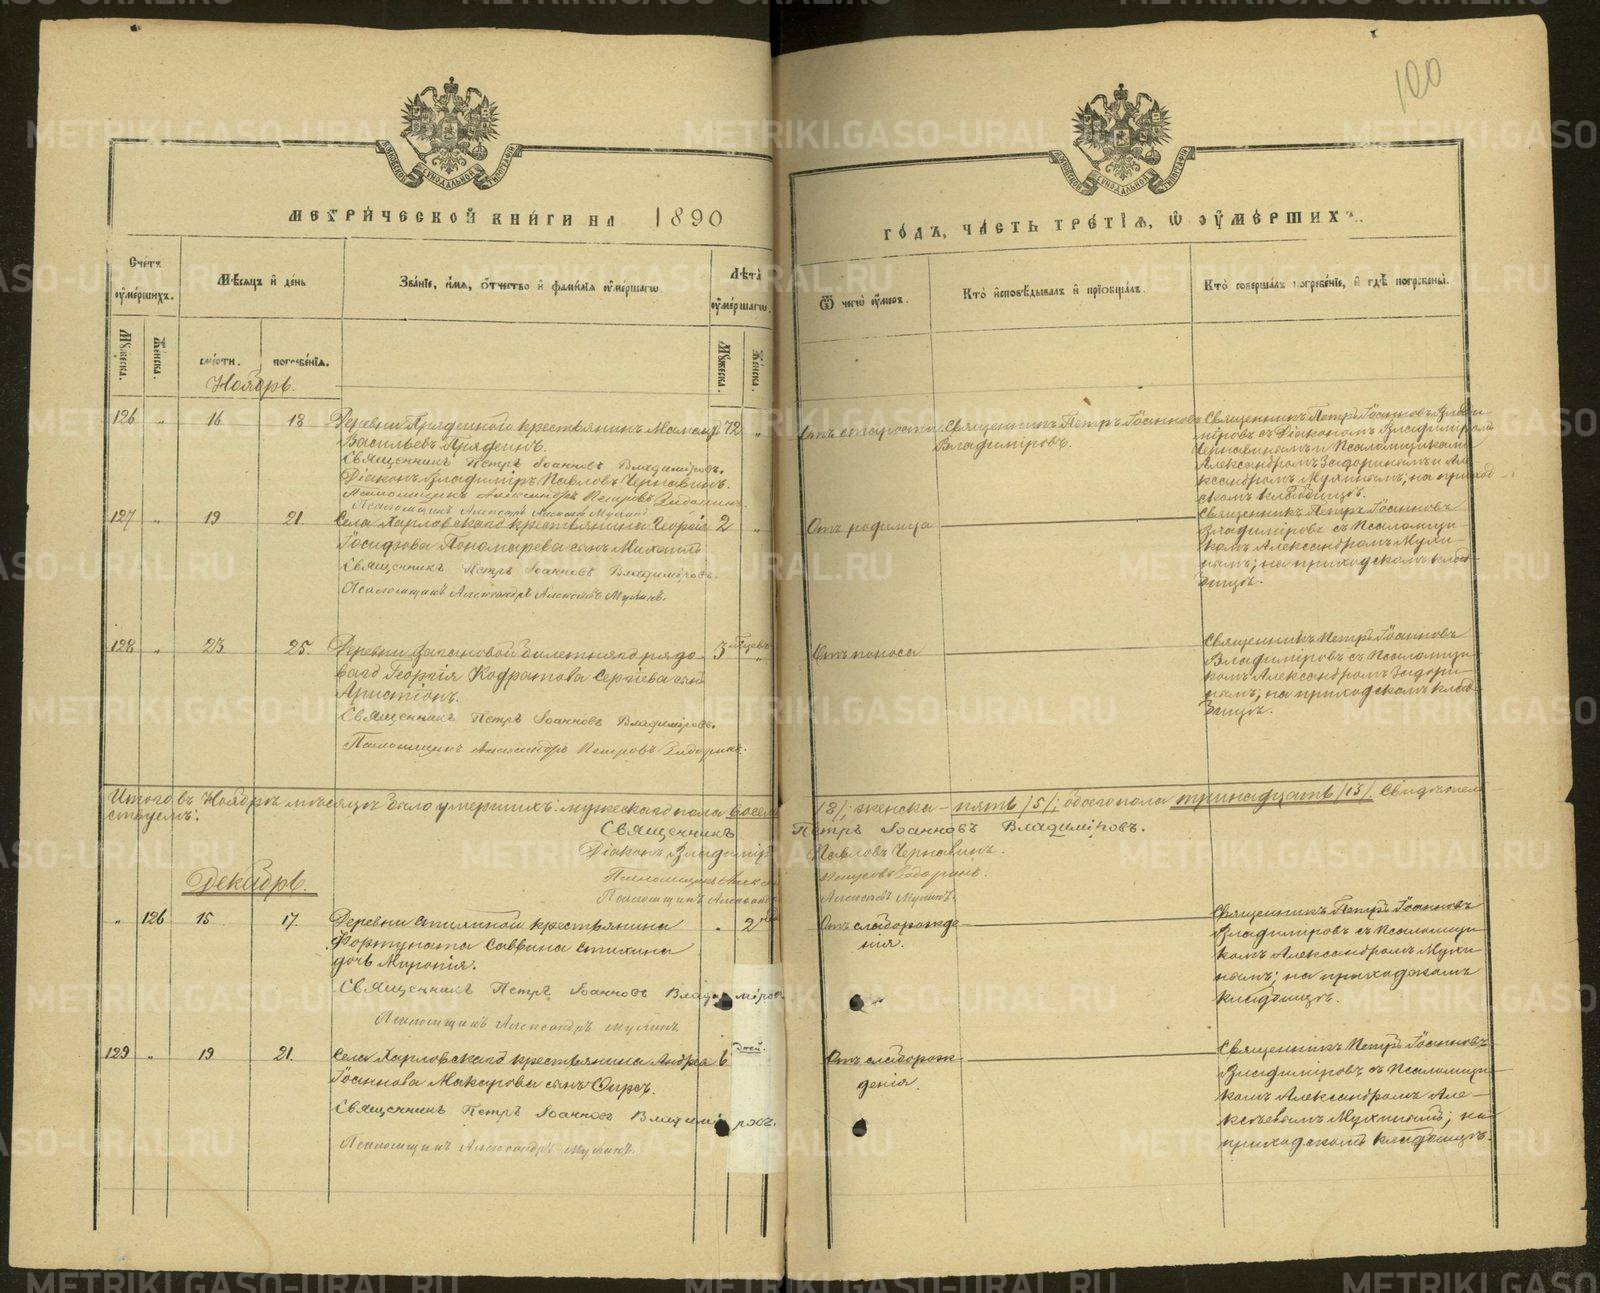 100
МЕТРИ́ЧЕСКОЙ КНИ́ГИ НА 1890
ГО́ДЪ, ЧА́СТЬ ТРЕ́ТІѦ, Ѿ ОУМЕ́РШИХЪ.
Сче́тъ оуме́ршихъ.
Мѣ́сѧцъ и де́нь
Зва́ніе, и́мѧ, о́тчество и фами́лія оуме́ршагѡ.
Лѣ́та оуме́ршагѡ.
Ѿ чегѡ̀ оу́меръ.
Кто̀ и҆сповѣ́дывалъ и҆ прїѡбща́лъ.
Кто̀ соверша́лъ погребе́нїе, и҆ гдѣ̀ погребены̀.
Мꙋ́жеска. Же́нска. сме́рти. погребе́нїѧ. Мꙋ́жеска. Же́нска.
Ноябрь.
126 „ 16 18 Деревни Пряденной крестьянинъ 72 „
Васильевъ Пряденъ.
Священникъ Петръ Іоанновъ Владиміровъ.
Діаконъ Владиміръ Павловъ Чернавинъ.
Псаломщикъ Александръ Петровъ Задоринъ.
Псаломщикъ Александръ Алексѣевъ Мухинъ.
Отъ старости
Священникъ Петръ Іоанновъ
Владиміровъ.
Священникъ Петръ Іоанновъ Влади-
міровъ съ Діакономъ Владиміромъ
Чернавинымъ и Псаломщиками
Александромъ Задоринымъ и Але-
ксандромъ Мухинымъ; на приход-
скомъ кладбищѣ.
127 „ 19 21. Села Харловскаго крестьянина Георгія 2 „
Іосифова Пономарева сынъ Михаилъ
Священникъ Петръ Іоанновъ Владиміровъ.
Псаломщикъ Александръ Алексѣевъ Мухинъ.
Отъ родимца
Священникъ Петръ Іоанновъ
Владиміровъ съ Псаломщи-
комъ Александромъ Мухи-
нымъ; на приходскомъ клад-
бищѣ.
128 „ 23 25. Деревни билетнаго рядо- 3 мѣсяцевъ „
ваго Георгія Кодратова Сергіева сынъ
Аристіонъ.
Священникъ Петръ Іоанновъ Владиміровъ.
Псаломщикъ Александръ Петровъ Задоринъ.
Отъ поноса
Священникъ Петръ Іоанновъ
Владиміровъ съ Псаломщи-
комъ Александромъ Задори-
нымъ; на приходскомъ клад-
бищѣ.
Итого въ Ноябрѣ мѣсяцѣ было умершихъ: мужескаго пола восемь /8/; женска – пять /5/; обоего пола тринадцать /13/. Свидѣтель-
ствуемъ:
Священникъ Петръ Іоанновъ Владиміровъ.
Діаконъ Владиміръ Павловъ Чернавинъ.
Псаломщикъ Александръ Петровъ Задоринъ.
Псаломщикъ Александръ Алексѣевъ Мухинъ.
Декабрь.
„ 126 15 17. Деревни крестьянина „ 2
Фортуната Саввина Стихина
дочь Маропія.
Священникъ Петръ Іоанновъ Владиміровъ
Псаломщикъ Александръ Мухинъ
Отъ слаборожде-
нія.
Священникъ Петръ Іоанновъ
Владиміровъ съ Псаломщи-
комъ Александромъ Мухи-
нымъ; на приходскомъ
кладбищѣ.
129 „ 19 21. Села Харловскаго крестьянина Андрея 6 дней.
Іоаннова Макарова сынъ
Священникъ Петръ Іоанновъ Владиміровъ.
Псаломщикъ Александръ Мухинъ.
Отъ слаборож-
денія.
Священникъ Петръ Іоанновъ
Владиміровъ съ Псаломщи-
комъ Александромъ Але-
ксѣевымъ Мухинымъ; на
приходскомъ кладбищѣ.
METRIKI.GASO-URAL.RU